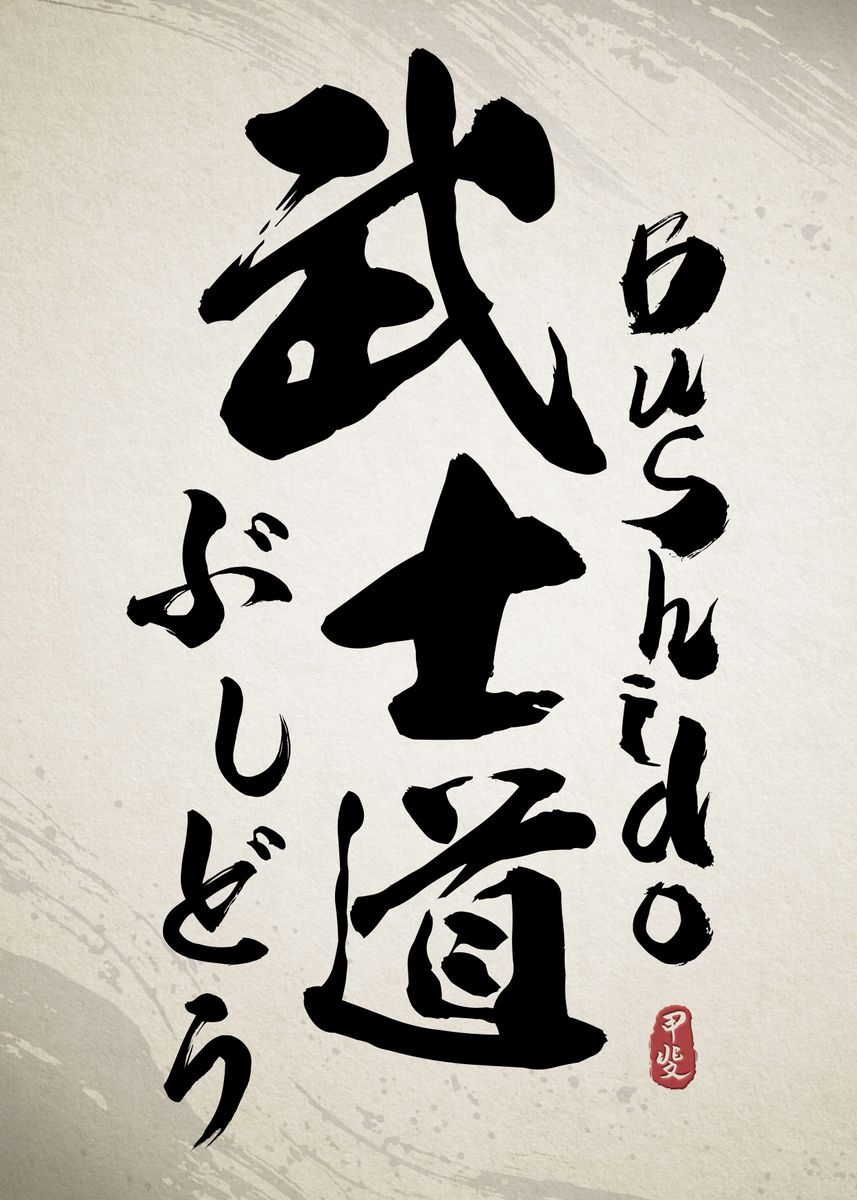 武士道
ぶしどう
Bushido
甲斐